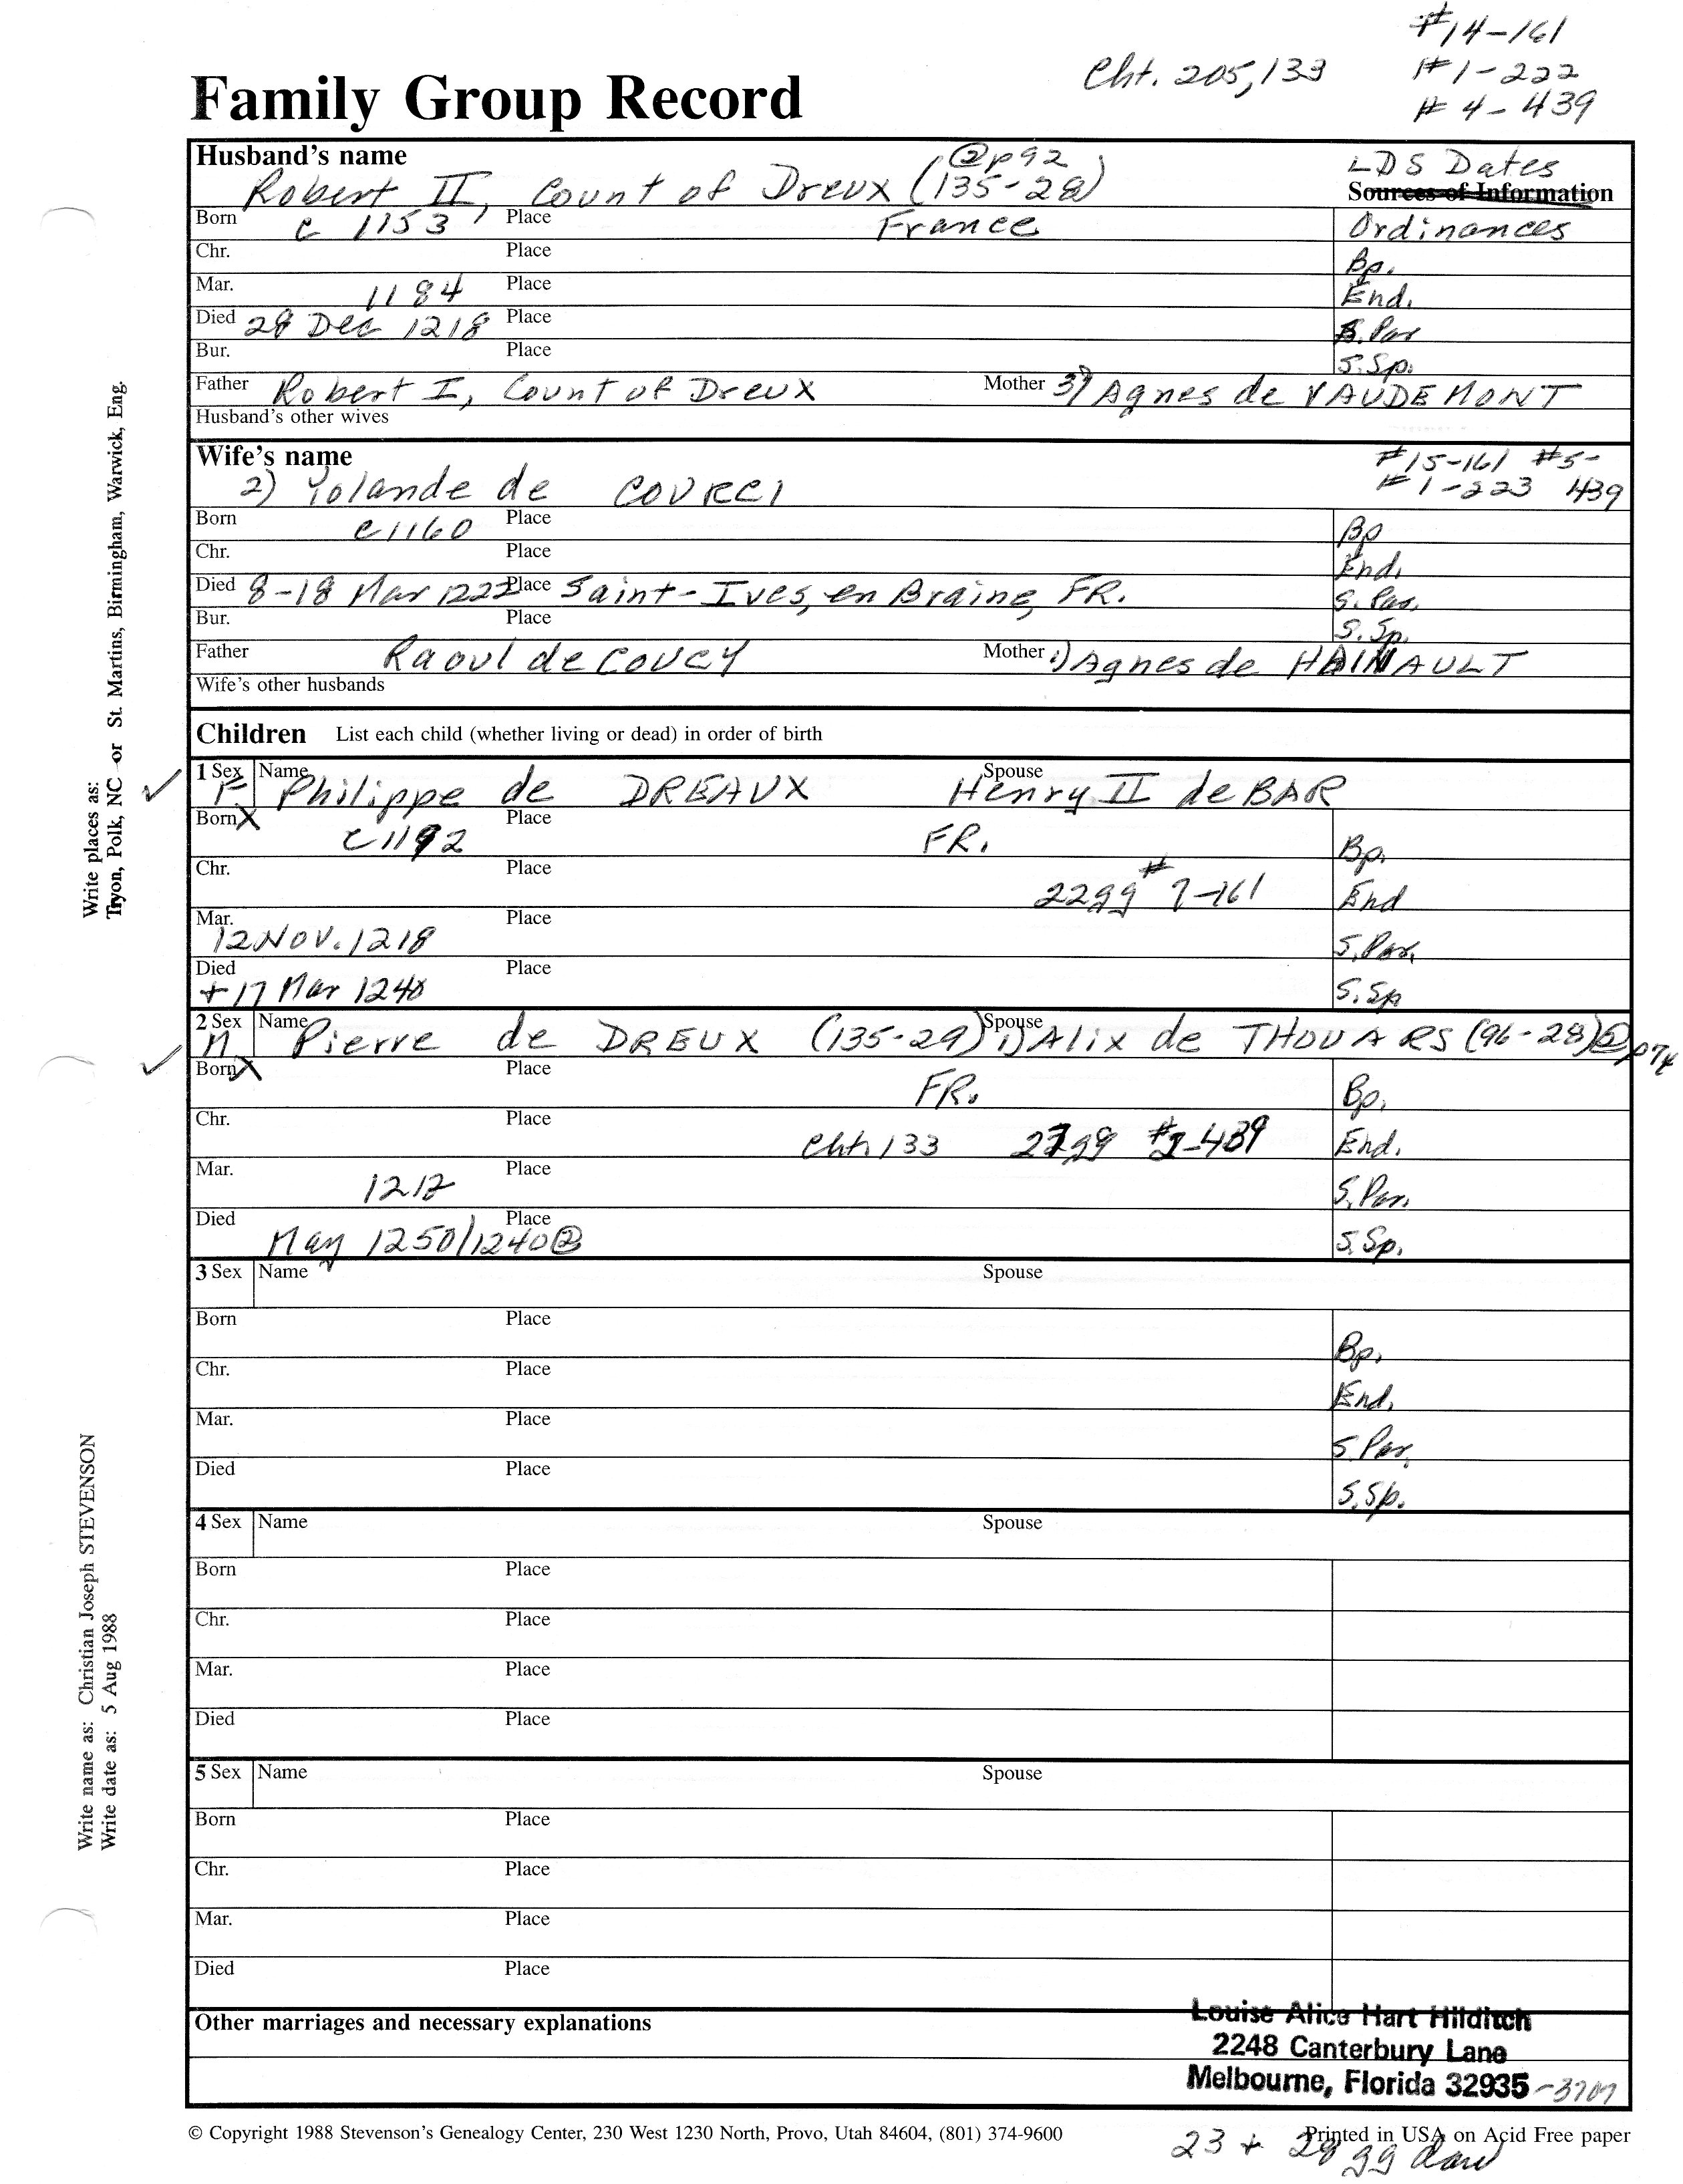 #14-161
Cht. 205,133 #1-222
Family Group Record # 4-439
Husband's name @p92 LDS Dates
Robert II, Count of Dreux (135-28) Sources of Information
Born c 1153 Place France Ordinances
Chr. Place Bp.
Mar. 1184 Place End.
Died 28 Dec 1218 Place S. Par
Bur. Place S. Sp.
Father Robert I, Count of Dreux Mother 3) Agnes de VAUDEMONT
Husband's other wives
Wife's name #15-161 #5-
2) Yolande de COURCI #1-223 439
Born c1160 Place Bp
Chr. Place End.
Died 8-18 Mar 1222 Place Saint-Ives, en Braine, FR. S. Par.
Bur. Place S. Sp.
Father Raoul de COUCY Mother 1) Agnes de HAINAULT
Wife's other husbands
Children List each child (whether living or dead) in order of birth
1 Sex F Name Philippe de DREAUX Spouse Henry II de BAR
Born X c1192 Place FR. Bp.
Chr. Place 22gg #7-161 End
Mar. 12 Nov. 1218 Place S. Par.
Died +17 Mar 1240 Place S. Sp
2 Sex M Name Pierre de DREUX (135-29) Spouse 1) Alix de THOUARS (96-28) @p74
Born X Place FR. Bp.
Chr. Place Cht. 133 27gg #2-439 End.
Mar. 1212 Place S. Par.
Died May 1250/1240@ Place S. Sp.
3 Sex Name Spouse
Born Place Bp.
Chr. Place End.
Mar. Place S. Par.
Died Place S. Sp.
4 Sex Name Spouse
Born Place
Chr. Place
Mar. Place
Died Place
5 Sex Name Spouse
Born Place
Chr. Place
Mar. Place
Died Place
Other marriages and necessary explanations
Louise Alice Hart Hilditch
2248 Canterbury Lane
Melbourne, Florida 32935 -3707
© Copyright 1988 Stevenson's Genealogy Center, 230 West 1230 North, Provo, Utah 84604, (801) 374-9600 Printed in USA on Acid Free paper
23 + 28 gg
Write places as:
Tryon, Polk, NC or St. Martins, Birmingham, Warwick, Eng.
Write name as: Christian Joseph STEVENSON
Write date as: 5 Aug 1988